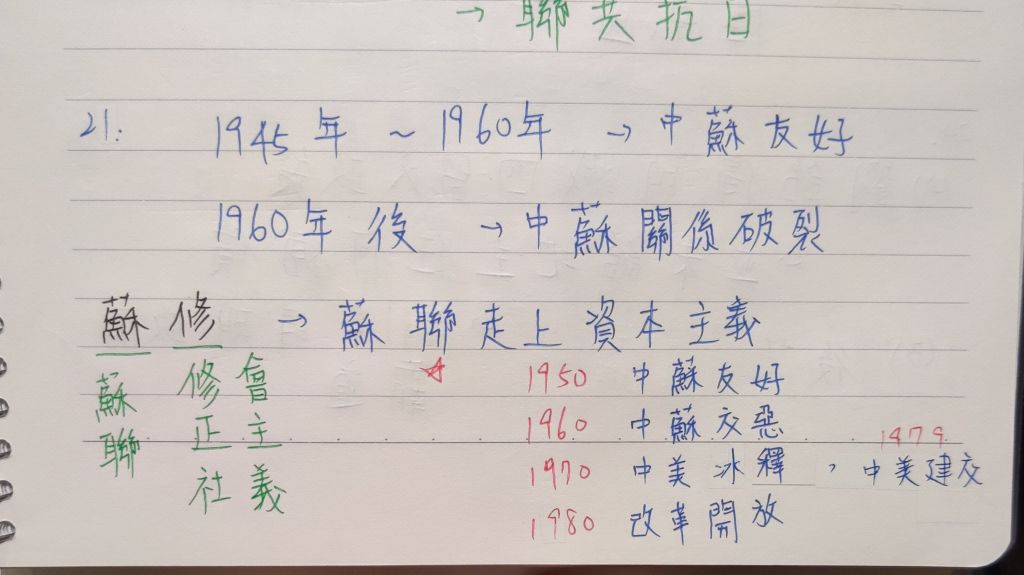 → 聯共抗日
21: 1945年 ~ 1960年 → 中蘇友好
1960年後 → 中蘇關係破裂
蘇修 → 蘇聯走上資本主義
蘇聯 修正社會主義
☆ 1950 中蘇友好
1960 中蘇交惡
1979
1970 中美冰釋，中美建交
1980 改革開放